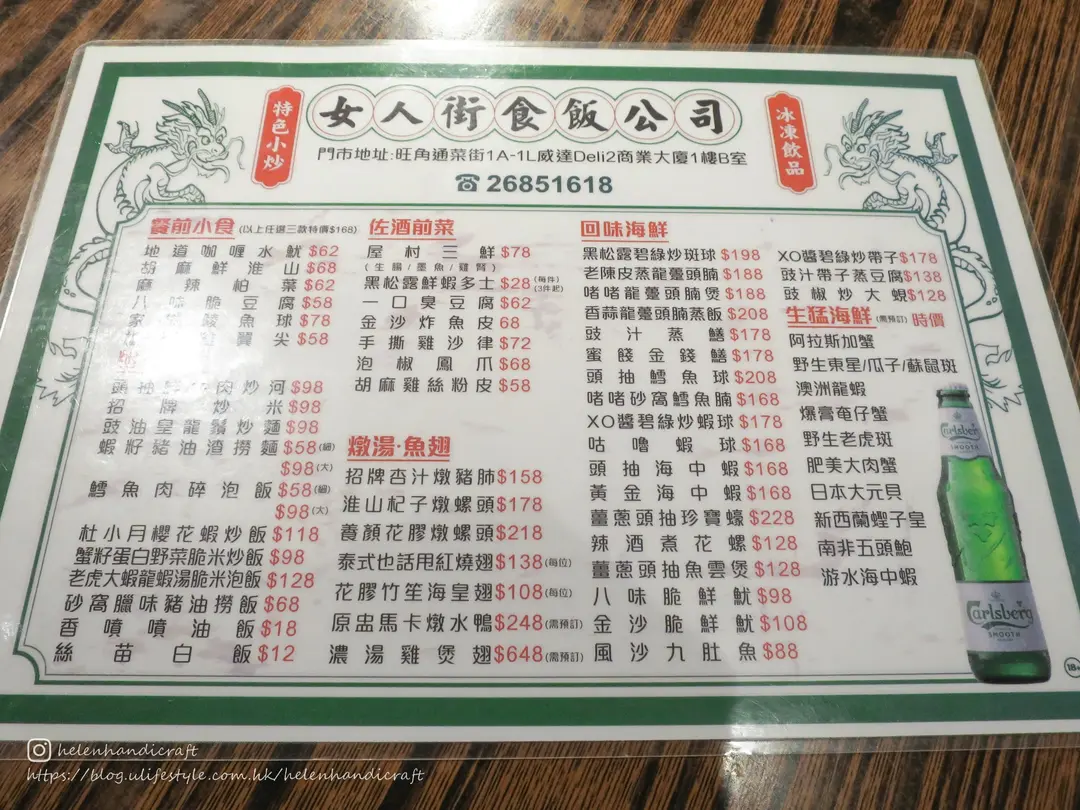 特色小炒
女人街食飯公司
冰凍飲品
門市地址:旺角通菜街1A-1L威達Deli2商業大廈1樓B室
☎ 26851618
餐前小食(以上任選三款特價$168)
地道咖喱水魷$62
胡麻鮮淮山$68
麻辣枱菜$62
八味脆豆腐$58
鯪魚球$78
翼尖$58
肉炒河$98
招牌炒米$98
豉油皇龍鬚炒麵$98
蝦籽豬油渣撈麵$58(細)
$98(大)
鱈魚肉碎泡飯$58(細)
$98(大)
杜小月櫻花蝦炒飯$118
蟹籽蛋白野菜脆米炒飯$98
老虎大蝦龍蝦湯脆米泡飯$128
砂窩臘味豬油撈飯$68
香噴噴油飯$18
絲苗白飯$12
佐酒前菜
屋村三鮮$78
(生腸/墨魚/雞腎)
黑松露鮮蝦多士$28(每件)(3件起)
一口臭豆腐$62
金沙炸魚皮68
手撕雞沙律$72
泡椒鳳爪$68
胡麻雞絲粉皮$58
燉湯·魚翅
招牌杏汁燉豬肺$158
淮山杞子燉螺頭$178
養顏花膠燉螺頭$218
泰式也話甩紅燒翅$138(每位)
花膠竹笙海皇翅$108(每位)
原盅馬卡燉水鴨$248(需預訂)
濃湯雞煲翅$648(需預訂)
回味海鮮
黑松露碧綠炒斑球$198
老陳皮蒸龍躉頭腩$188
啫啫龍躉頭腩煲$188
香蒜龍躉頭腩蒸飯$208
豉汁蒸鱔$178
蜜餞金錢鱔$178
頭抽鱈魚球$208
啫啫砂窩鱈魚腩$168
XO醬碧綠炒蝦球$178
咕嚕蝦球$168
頭抽海中蝦$168
黃金海中蝦$168
薑蔥頭抽珍寶蠔$228
辣酒煮花螺$128
薑蔥頭抽魚雲煲$128
八味脆鮮魷$98
金沙脆鮮魷$108
風沙九肚魚$88
XO醬碧綠炒帶子$178
豉汁帶子蒸豆腐$138
豉椒炒大蜆$128
生猛海鮮(需預訂)時價
阿拉斯加蟹
野生東星/瓜子/蘇鼠斑
澳洲龍蝦
爆膏奄仔蟹
野生老虎斑
肥美大肉蟹
日本大元貝
新西蘭蟶子皇
南非五頭鮑
游水海中蝦
Carlsberg
SMOOTH
Carlsberg
SMOOTH
18+
helenhandicraft
https://blog.ulifestyle.com.hk/helenhandicraft